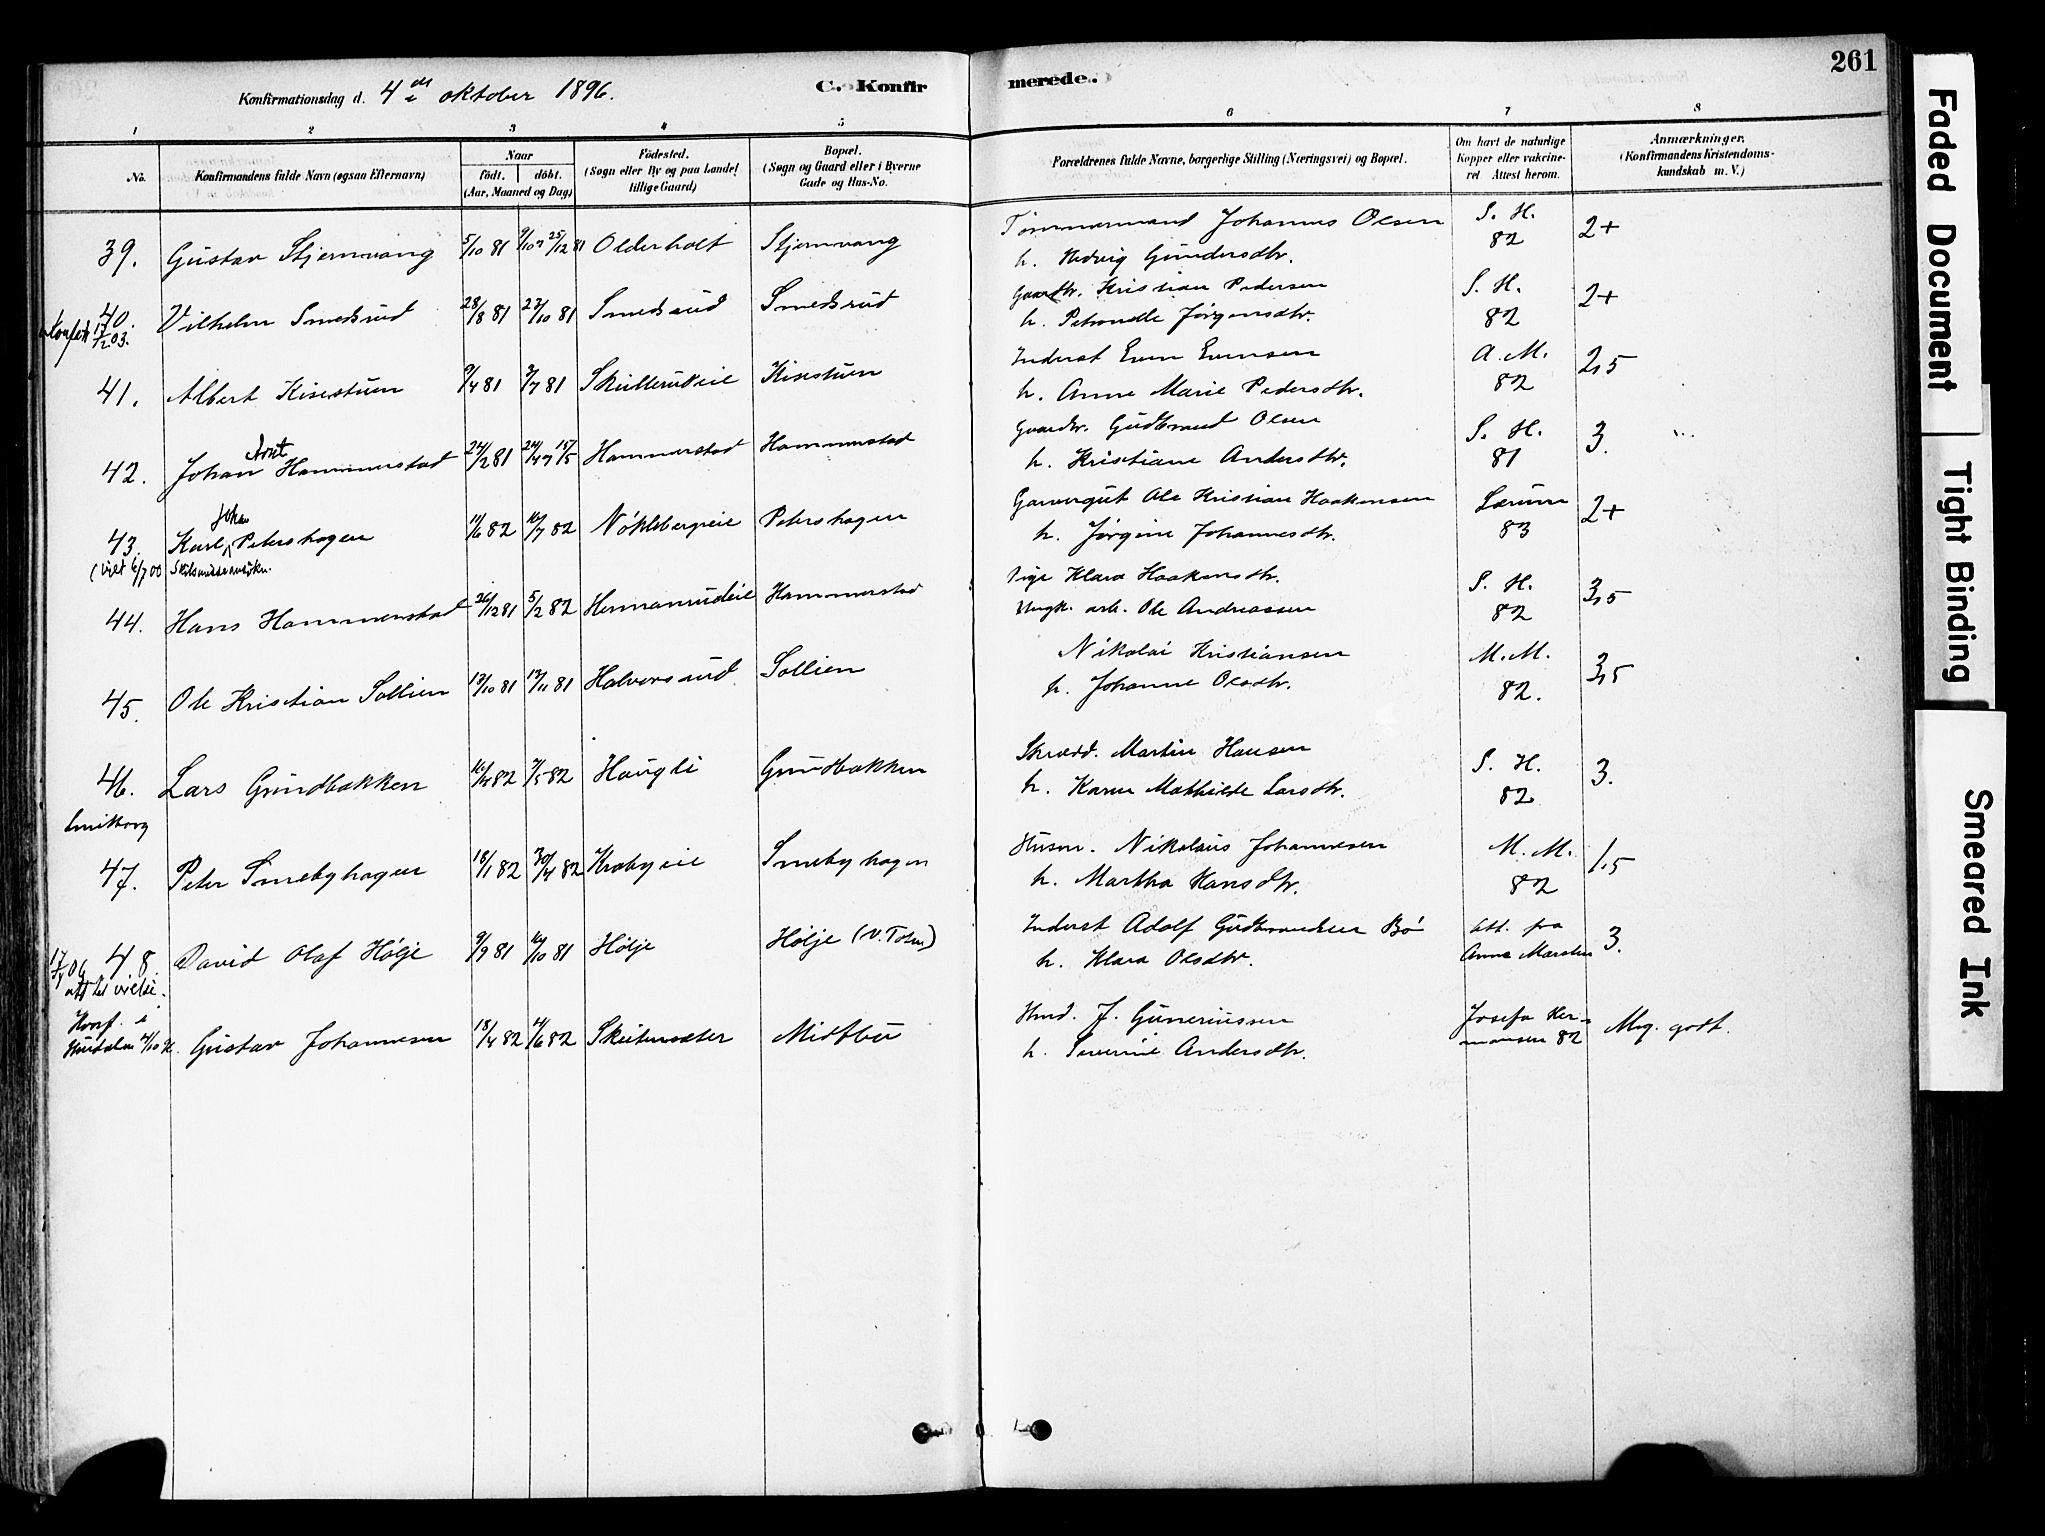 261
Konfirmationsdag d. 4de oktober 1896.
C. Konfirmerede.
1 2 3 4 5 6 7 8
No.
Konfirmandens fulde Navn (ogsaa Efternavn)
Naar
født. døbt.
(Aar, Maaned og Dag)
Fødested.
(Sogn eller By og paa Landet
tillige Gaard)
Bopæl.
(Sogn og Gaard eller i Byerne
Gade og Hus-No.
Forældrenes fulde Navne, borgerlige Stilling (Næringsvei) og Bopæl.
Om havt de naturlige
Kopper eller vakcine-
ret Attest herom.
Anmærkninger.
(Konfirmandens Kristendoms-
kundskab m. V.)
39. Gustav Stjernvang 5/10 81 9/10 25/12 81 Olderholt Stjernvang Tømmermand Johannes Olsen S. H. 82 2+
h. Hedvig Gundersdtr.
40. Vilhelm Smedsrud 28/8 81 23/10 81 Smedsrud Smedsrud Gaardbr. Kristian Pedersen S. H. 82 2+
h. Petronelle Jørgensdtr.
41. Albert Kisestuen 9/4 81 3/7 81 Skullerudeie Kisestuen Inderst Even Evensen A. M. 82 2,5
h. Anne Marie Pedersdtr.
42. Johan Arnt Hammerstad 24/2 81 24/4 15/5 Hammerstad Hammerstad Gaardbr. Gudbrand Olsen S. H. 81 3.
h. Kristiane Andersdtr.
43. Karl Johan Petershagen 11/6 82 16/7 82 Nøklebergeie Petershagen Garvergut Ole Kristian Haakensen Lærum 83 2+
h. Jørgine Johannesdtr.
44. Hans Hammerstad 26/12 81 5/2 82 Hermanrudeie Hammerstad Pige Klara Haakensdtr. S. H. 82 3,5
Ungk. arb. Ole Andreassen
45. Ole Kristian Sollien 13/10 81 13/11 81 Halvorsrud Sollien Nikolai Kristiansen M. M. 82. 3,5
h. Johanne Olsdtr.
46. Lars Grundbakken 10/4 82 7/5 82 Haugli Grundbakken Skrædd. Martin Hansen S. H. 82 3.
h. Karen Mathilde Larsdtr.
47. Peter Smebyhagen 18/1 82 30/4 82 Krabyeie Smebyhagen Husm. Nikolaus Johannesen M. M. 82 1,5
h. Martha Hansdtr.
48. David Olaf Hølje 9/9 81 16/10 81 Hølje Hølje (V. Toten) Inderst Adolf Gudbrandsen Bø att. fra 3.
att. til vielse. h. Klara Olsdtr. Anna
Konf. i Gustav Johannesen 18/4 82 11/6 82 Midtbu J. Guneriussen Josefa Her- Meg. godt.
h. Severine Andersdtr. mansen 82
Faded Document
Tight Binding
Smeared Ink